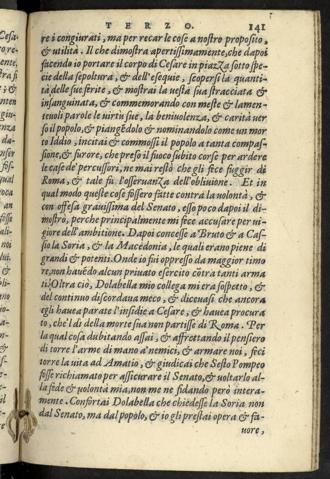 TERZO. 141
re i congiurati, ma per recar le cose a nostro proposito,
& utilità. Il che dimostra apertissimamente, che dapoi
facendo io portare il corpo di Cesare in piazza sotto spe
cie della sepoltura, & dell'esequie, scopersi la quanti-
tà delle sue ferite, & mostrai la uesta sua stracciata &
insanguinata, & commemorando con meste & lamen-
teuoli parole le uirtu sue, la beniuolenza, & carità uer
so il popolo, & piangẽdolo & nominandolo come un mor
to Iddio, incitai & commossi il popolo a tanta compas-
sione, & furore, che preso il fuoco subito corse per ardere
le case de' percussori, ne mai restò che gli fece fuggir di
Roma, & tale fu l'osseruanza dell'obliuione. Et in
qual modo queste cose fossero fatte contra la uolontà, &
con offesa grauissima del Senato, esso poco dapoi il di-
mostrò, perche principalmente mi fece accusare per ni-
giore dell'ambitione. Dapoi concesse a' Bruto & a Cas-
sio la Soria, & la Macedonia, le quali erano piene di
grandi & potenti. Onde io fui oppresso da maggior timo
re, non hauẽdo alcun priuato esercito cõtra tanti arma
ti. Oltra ciò, Dolabella mio collega mi era sospetto, &
del continuo discordaua meco, & diceuasi che ancora
egli hauea parate l'insidie a Cesare, & hauea procura
to, che'l di della morte sua non partisse di Roma. Per
la qual cosa dubitando assai, & affrettando il pensiero
di torre l'arme di mano a' nemici, & armare noi, feci
torre la uita ad Amatio, & giudicai che Sesto Pompeo
fosse richiamato per assicurare il Senato, & uoltarlo al-
la fide & uolontà mia, non me ne fidando però intera-
mente. Confortai Dolabella che chiedesse la Soria non
dal Senato, ma dal popolo, & io gli prestai opera & fa-
uore,